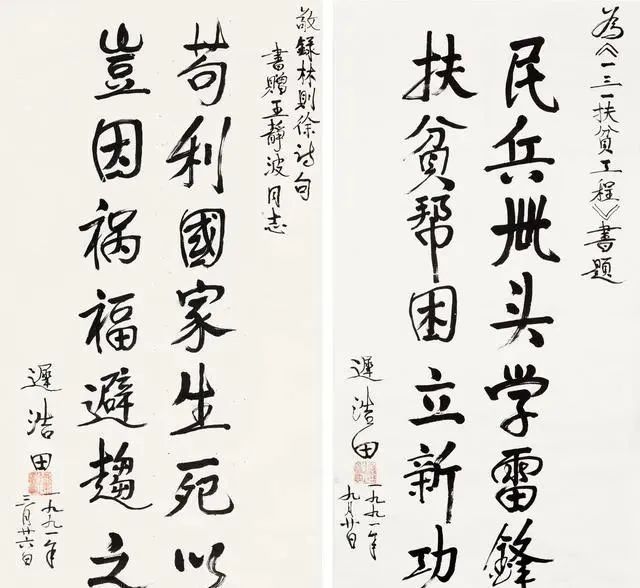 敬録林則徐诗句
書贈王静波同志
苟利國家生死以
豈因祸福避趨之
遲浩田
一九九一年
三月廿六日
為《一三一扶貧工程》書題
民兵带头学雷鋒
扶貧帮困立新功
遲浩田
一九九一年
九月廿日